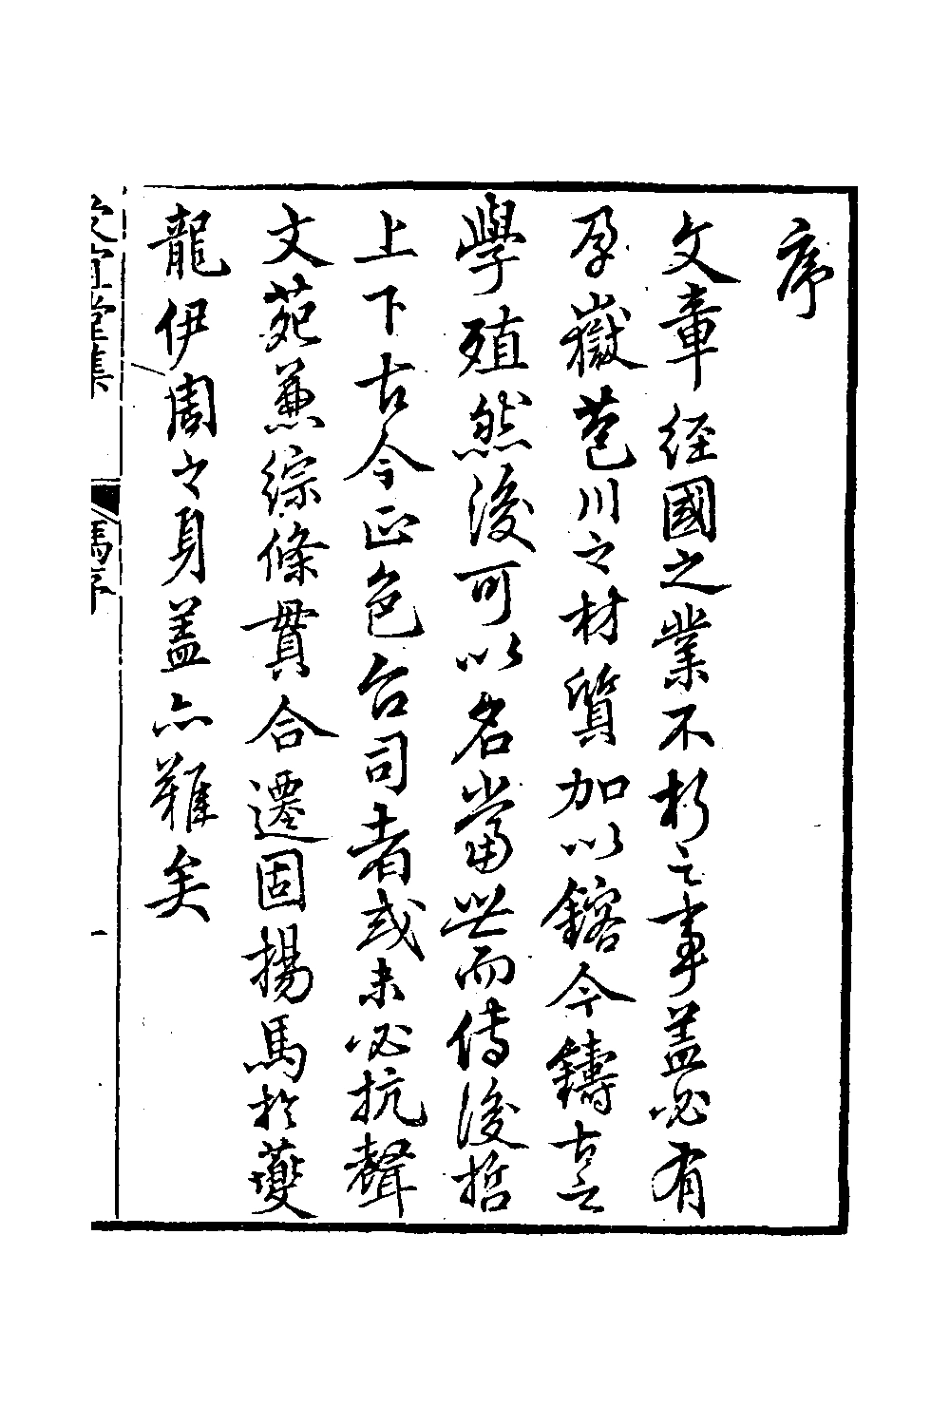 序
文章經國之業不朽之事蓋必有
孕嶽苞川之材質加以鎔今鑄古之
學殖然後可以名當世而傳後哲
上下古今正色台司者或未必抗聲
文苑兼綜條貫合遷固揚馬於夔
龍伊周之身蓋亦難矣
宜堂集
馬序
一